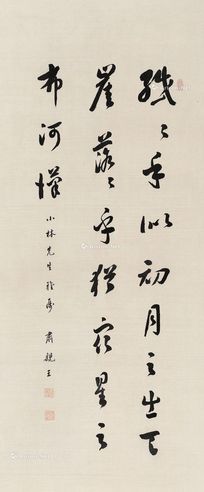 纖々乎似初月之出天
崖落々乎猶衆星之
布河漢
小林先生雅屬 肅親王